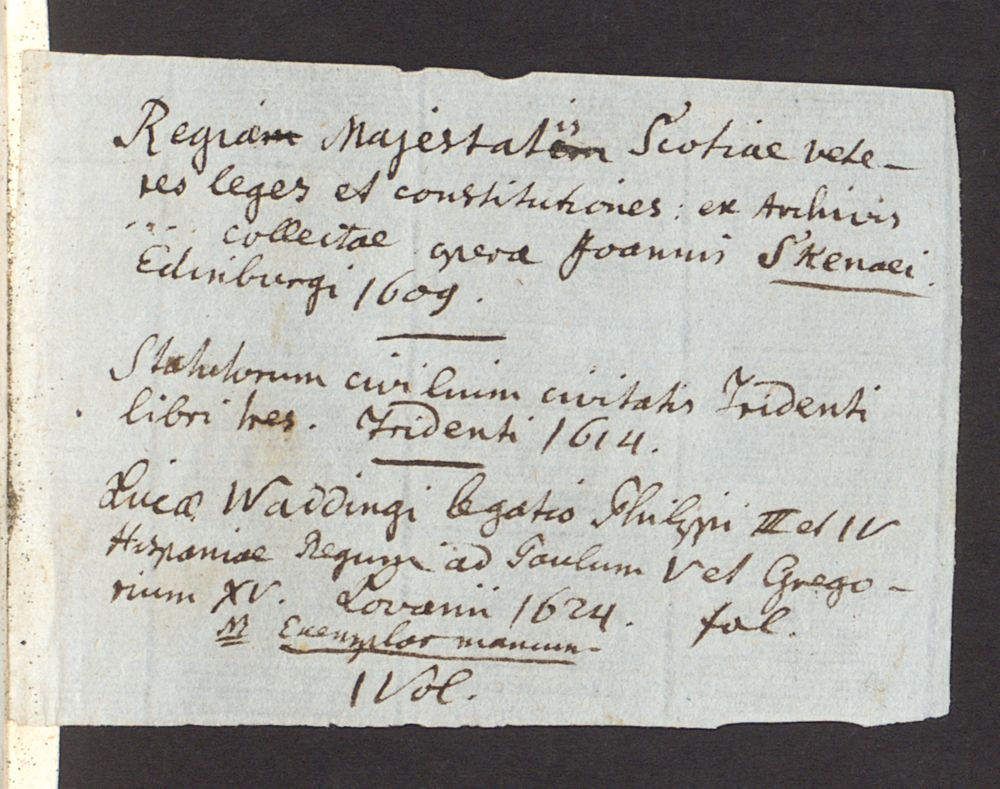 Regiam Majestatis Scotiae vete-
res leges et constitutiones: ex Archivis
.... collectae opera Joannis Skenaei.
Edinburgi 1609.
Statutorum civilium civitatis Tridenti
libri tres. Tridenti 1614.
Lucae Waddingi legatio Philippi III et IV
Hispaniae Regum ad Paulum V et Grego-
rium XV. Lovanii 1624. fol.
NB Exemplar mancum.
1 Vol.